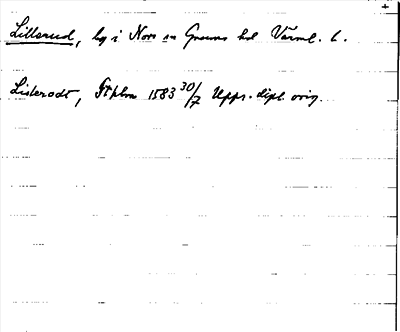 Lillerud, by i Nors sn Grums hd Värml. l.
Lillerodt, Sthlm 1583 30/7 Upps. dipl. orig.